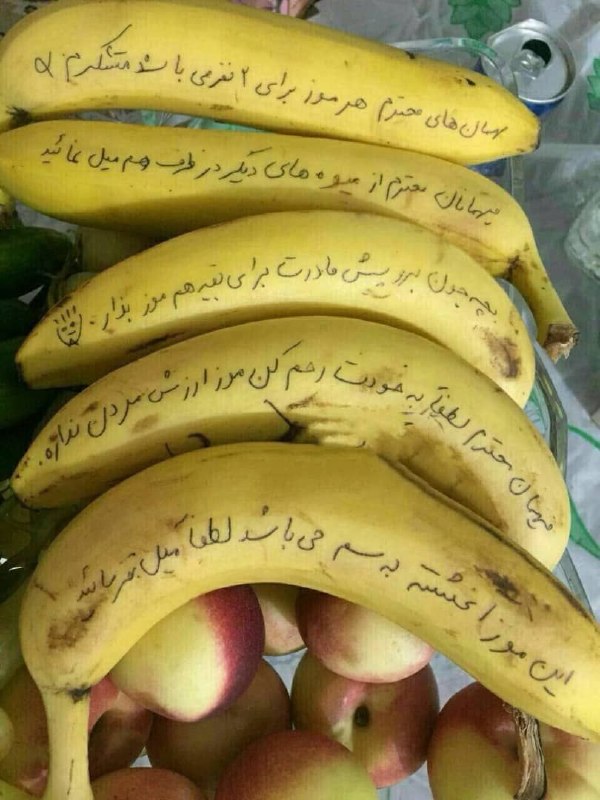 مهمان های محترم هر موز برای ۲ نفر می باشد متشکرم
میهمانان محترم از میوه های دیگر در ظرف هم میل نمائید
بچه جون برو پیش مادرت برای بقیه هم موز بذار.
میهمان محترم لطفاً به خودت رحم کن موز ارزش مردن نداره.
این موز آغشته به سم می باشد لطفاً میل نفرمائید